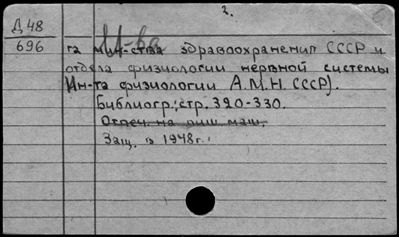 2.
Д 48
696
та мин-ства здравоохранения СССР и
отдела физиологии нервной системы
Ин-та физиологии А.М.Н. СССР).
Библиогр.: стр. 320-330.
Отпеч. на пиш. маш.
Защ. в 1948 г.